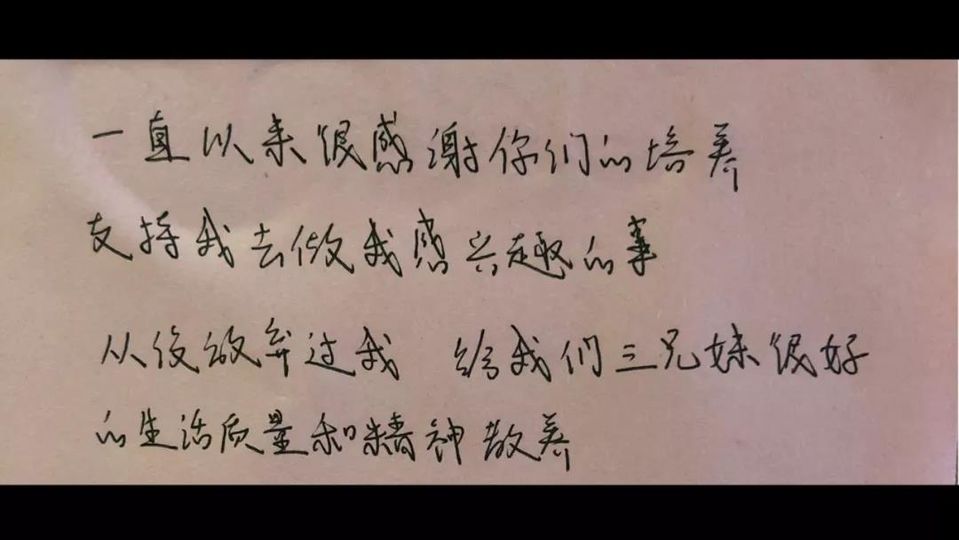 一直以来很感谢你们的培养
支持我去做我感兴趣的事
从没放弃过我 给我们三兄妹很好
的生活质量和精神散养